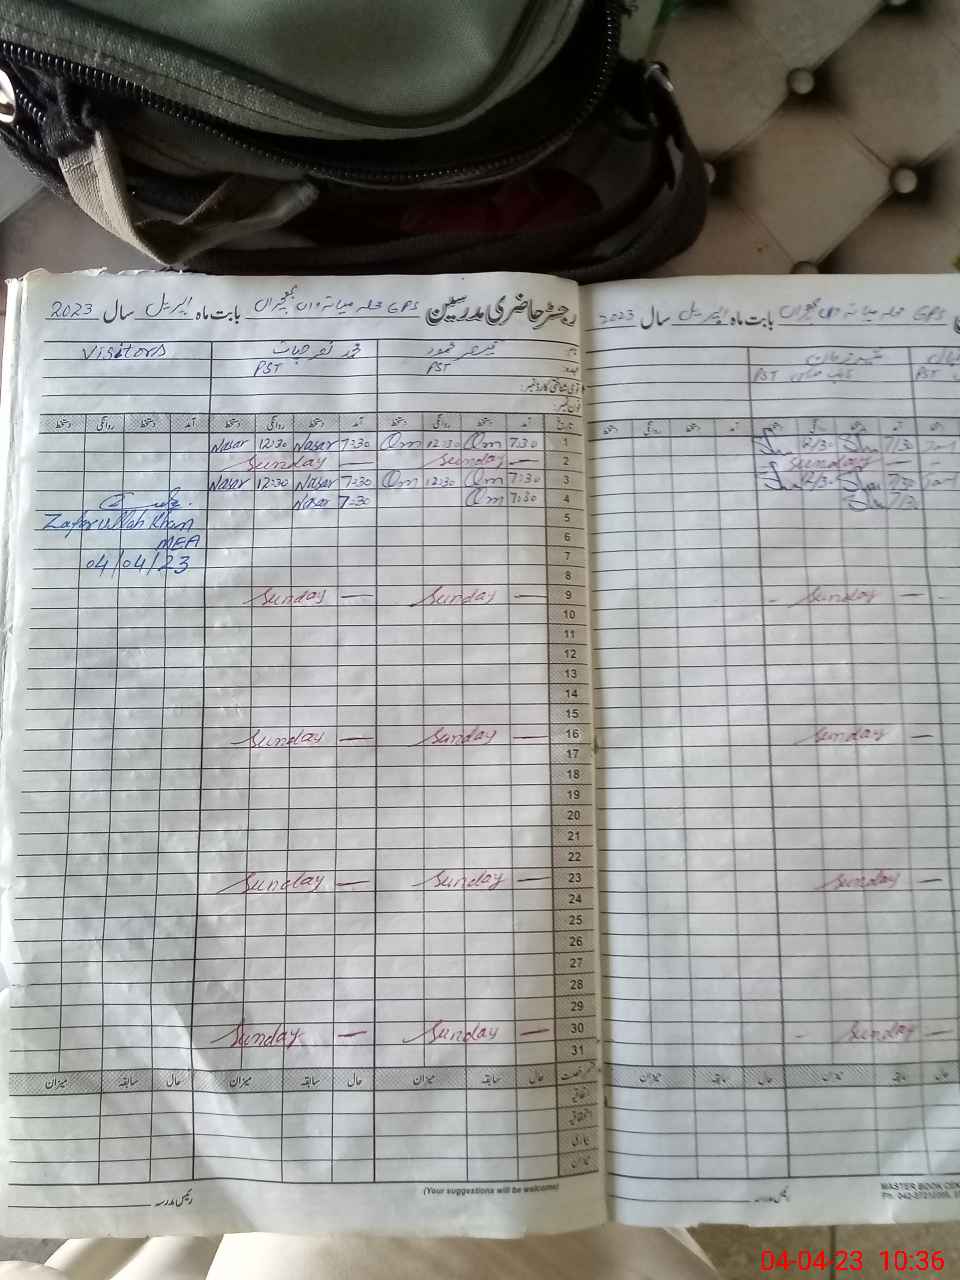 رجسٹر حاضری مدرسین GPS محلہ میانہ وان بھچراں بابت ماہ اپریل سال 2023
Visitors
PST PST
قومی شناختی کارڈ نمبر:
فون نمبر:
تاریخ آمد دستخط روانگی دستخط آمد دستخط روانگی دستخط آمد دستخط روانگی دستخط
Nasar 12:30 Nasar 7:30 Qm 12:30 Qm 7:30 1
Sunday — Sunday — 2
Nasar 12:30 Nasar 7:30 Qm 12:30 Qm 7:30 3
Nasar 7:30 Qm 7:30 4
Zafar ullah Khan 5
MEA 6
04/04/23 7
8
Sunday — Sunday — 9
10
11
12
13
14
15
Sunday — Sunday — 16
17
18
19
20
21
22
Sunday — Sunday — 23
24
25
26
27
28
29
Sunday — Sunday — 30
31
حال سابقہ میزان حال سابقہ میزان حال سابقہ میزان
اتفاقیہ
استحقاقیہ
بیماری
میزان
(Your suggestions will be welcome)
رئیس مدرسہ
GPS محلہ میانہ وان بھچراں بابت ماہ اپریل سال 2023
PST PST
12/30 7/30
Sunday —
12/30 7/30
7/30
- Sunday —
Sunday —
Sunday —
- Sunday —
حال سابقہ میزان حال سابقہ میزان
رئیس مدرسہ
MASTER BOOK CEN
04-04-23 10:36